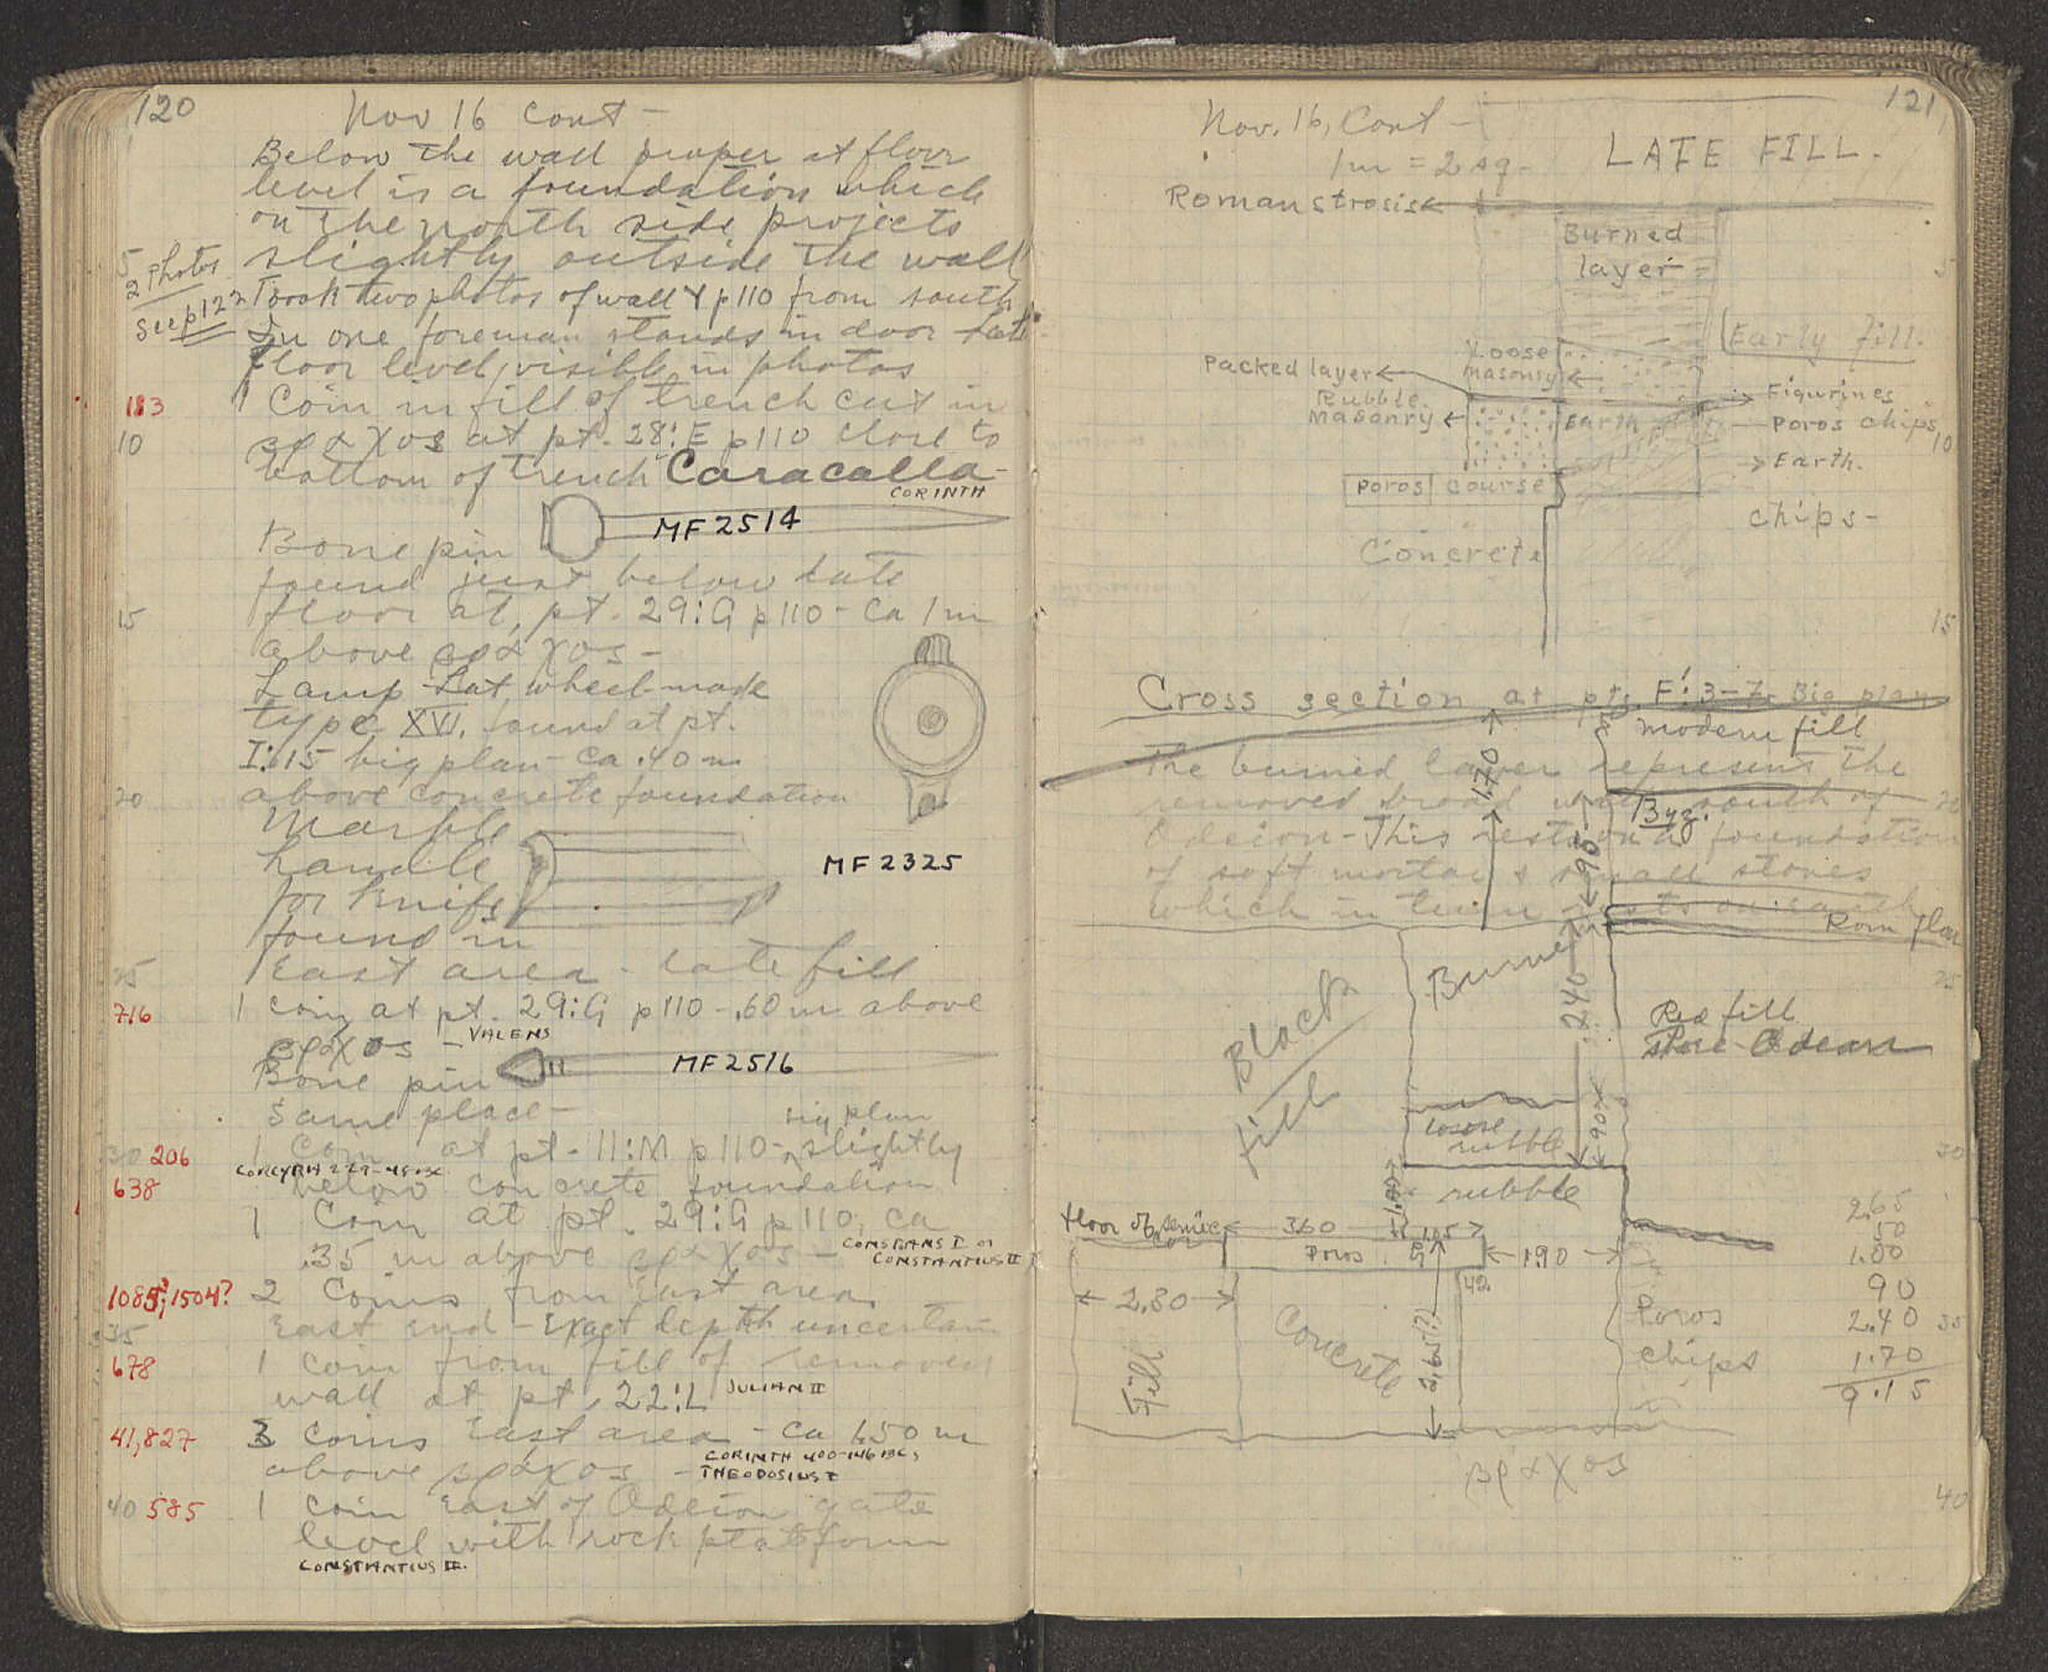 120
Nov 16 cont -
Below the wall proper at floor
level is a foundation which
on the north side projects
5
slightly outside the wall
2 Photos
see p 122
Took two photos of wall Y p110 from south
In one foreman stands in door late
floor level, visible in photos
183
1 Coin in fill of trench cut in
10
βράχος at pt. 28:E p110 close to
bottom of trench Caracalla -
CORINTH
Bone pin
MF 2514
found just below late
15
floor at, pt. 29:G p110 - ca 1m
above βράχος -
Lamp - Lat wheel-made
type XVI. found at pt.
I:15 big plan - ca .40 m
20
above concrete foundation
Marble
handle
MF 2325
for knife
found in
25
East area - late fill
716
1 Coin at pt. 29:G p110 - .60 m above
βράχος -
VALENS
Bone pin
MF 2516
same place -
big plan
30
206
1 Coin at pt. 11:M p110 - slightly
CORCYRA 229-48 BC
638
below concrete foundation
1 Coin at pt. 29:G p110, ca
.35 m above βράχος -
CONSTANS I or
CONSTANTIUS II
1085?, 1504?
2 Coins from East area
35
East end - Exact depth uncertain
678
1 Coin from fill of removed
wall at pt. 22:L
JULIAN II
41, 827
3 Coins East area - ca 1.50 m
above βράχος -
CORINTH 400-146 BC,
THEODOSIUS I
40
585
1 Coin East of Odeion gate
level with rock platform
CONSTANTIUS II.
121
Nov. 16, Cont -
1m = 2 sq -
LATE FILL.
Roman strosis
Burned
layer
5
Early fill.
Loose
masonry
Packed layer
Rubble
Masonry
Earth
Figurines
Poros chips
10
Earth.
Poros course
chips -
Concrete
15
Cross section at pts. F': 3-7. Big plan
modern fill
The burned layer represents the
removed broad wall south of
20
Odeion - This rests on a foundation
of soft mortar & small stones
which in turn rests on earth
Byz.
1.70
.90
Rom floor
Burned
2.40
25
Black
fill
Red fill
Odeum
loose
rubble
.90
30
rubble
1.00
floor
360
1.05
Poros
50
190
42
2.30
Fill
Concrete
2.65(?)
Poros
chips
2.65
50
1.00
90
2.40
35
1.70
9.15
βράχος
40